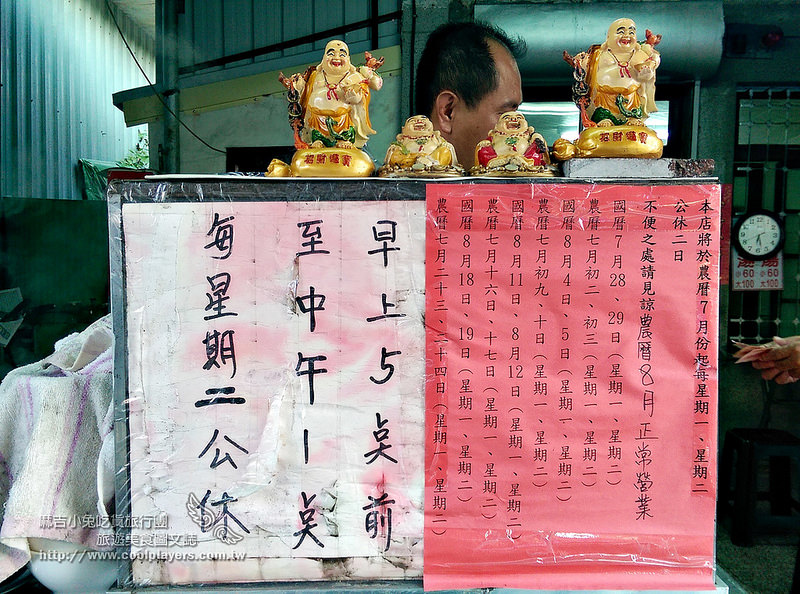 本店將於農曆7月份起每星期一、星期二
公休二日
不便之處請見諒農曆8月正常營業
國曆7月28、29日(星期一、星期二)
農曆七月初二、初三(星期一、星期二)
國曆8月4日、5日(星期一、星期二)
農曆七月初九、十日(星期一、星期二)
國曆8月11日、8月12日(星期一、星期二)
農曆七月十六日、十七日(星期一、星期二)
國曆8月18日、19日(星期一、星期二)
農曆七月二十三、二十四日(星期一、星期二)
早上5点前
至中午1点
每星期二公休
招財進寶
招財進寶
湯湯
小大
60 100
小大
60 100
飄吉小兔吃貨旅行團
旅遊美食圖文誌
http://www.coolplayers.com.tw